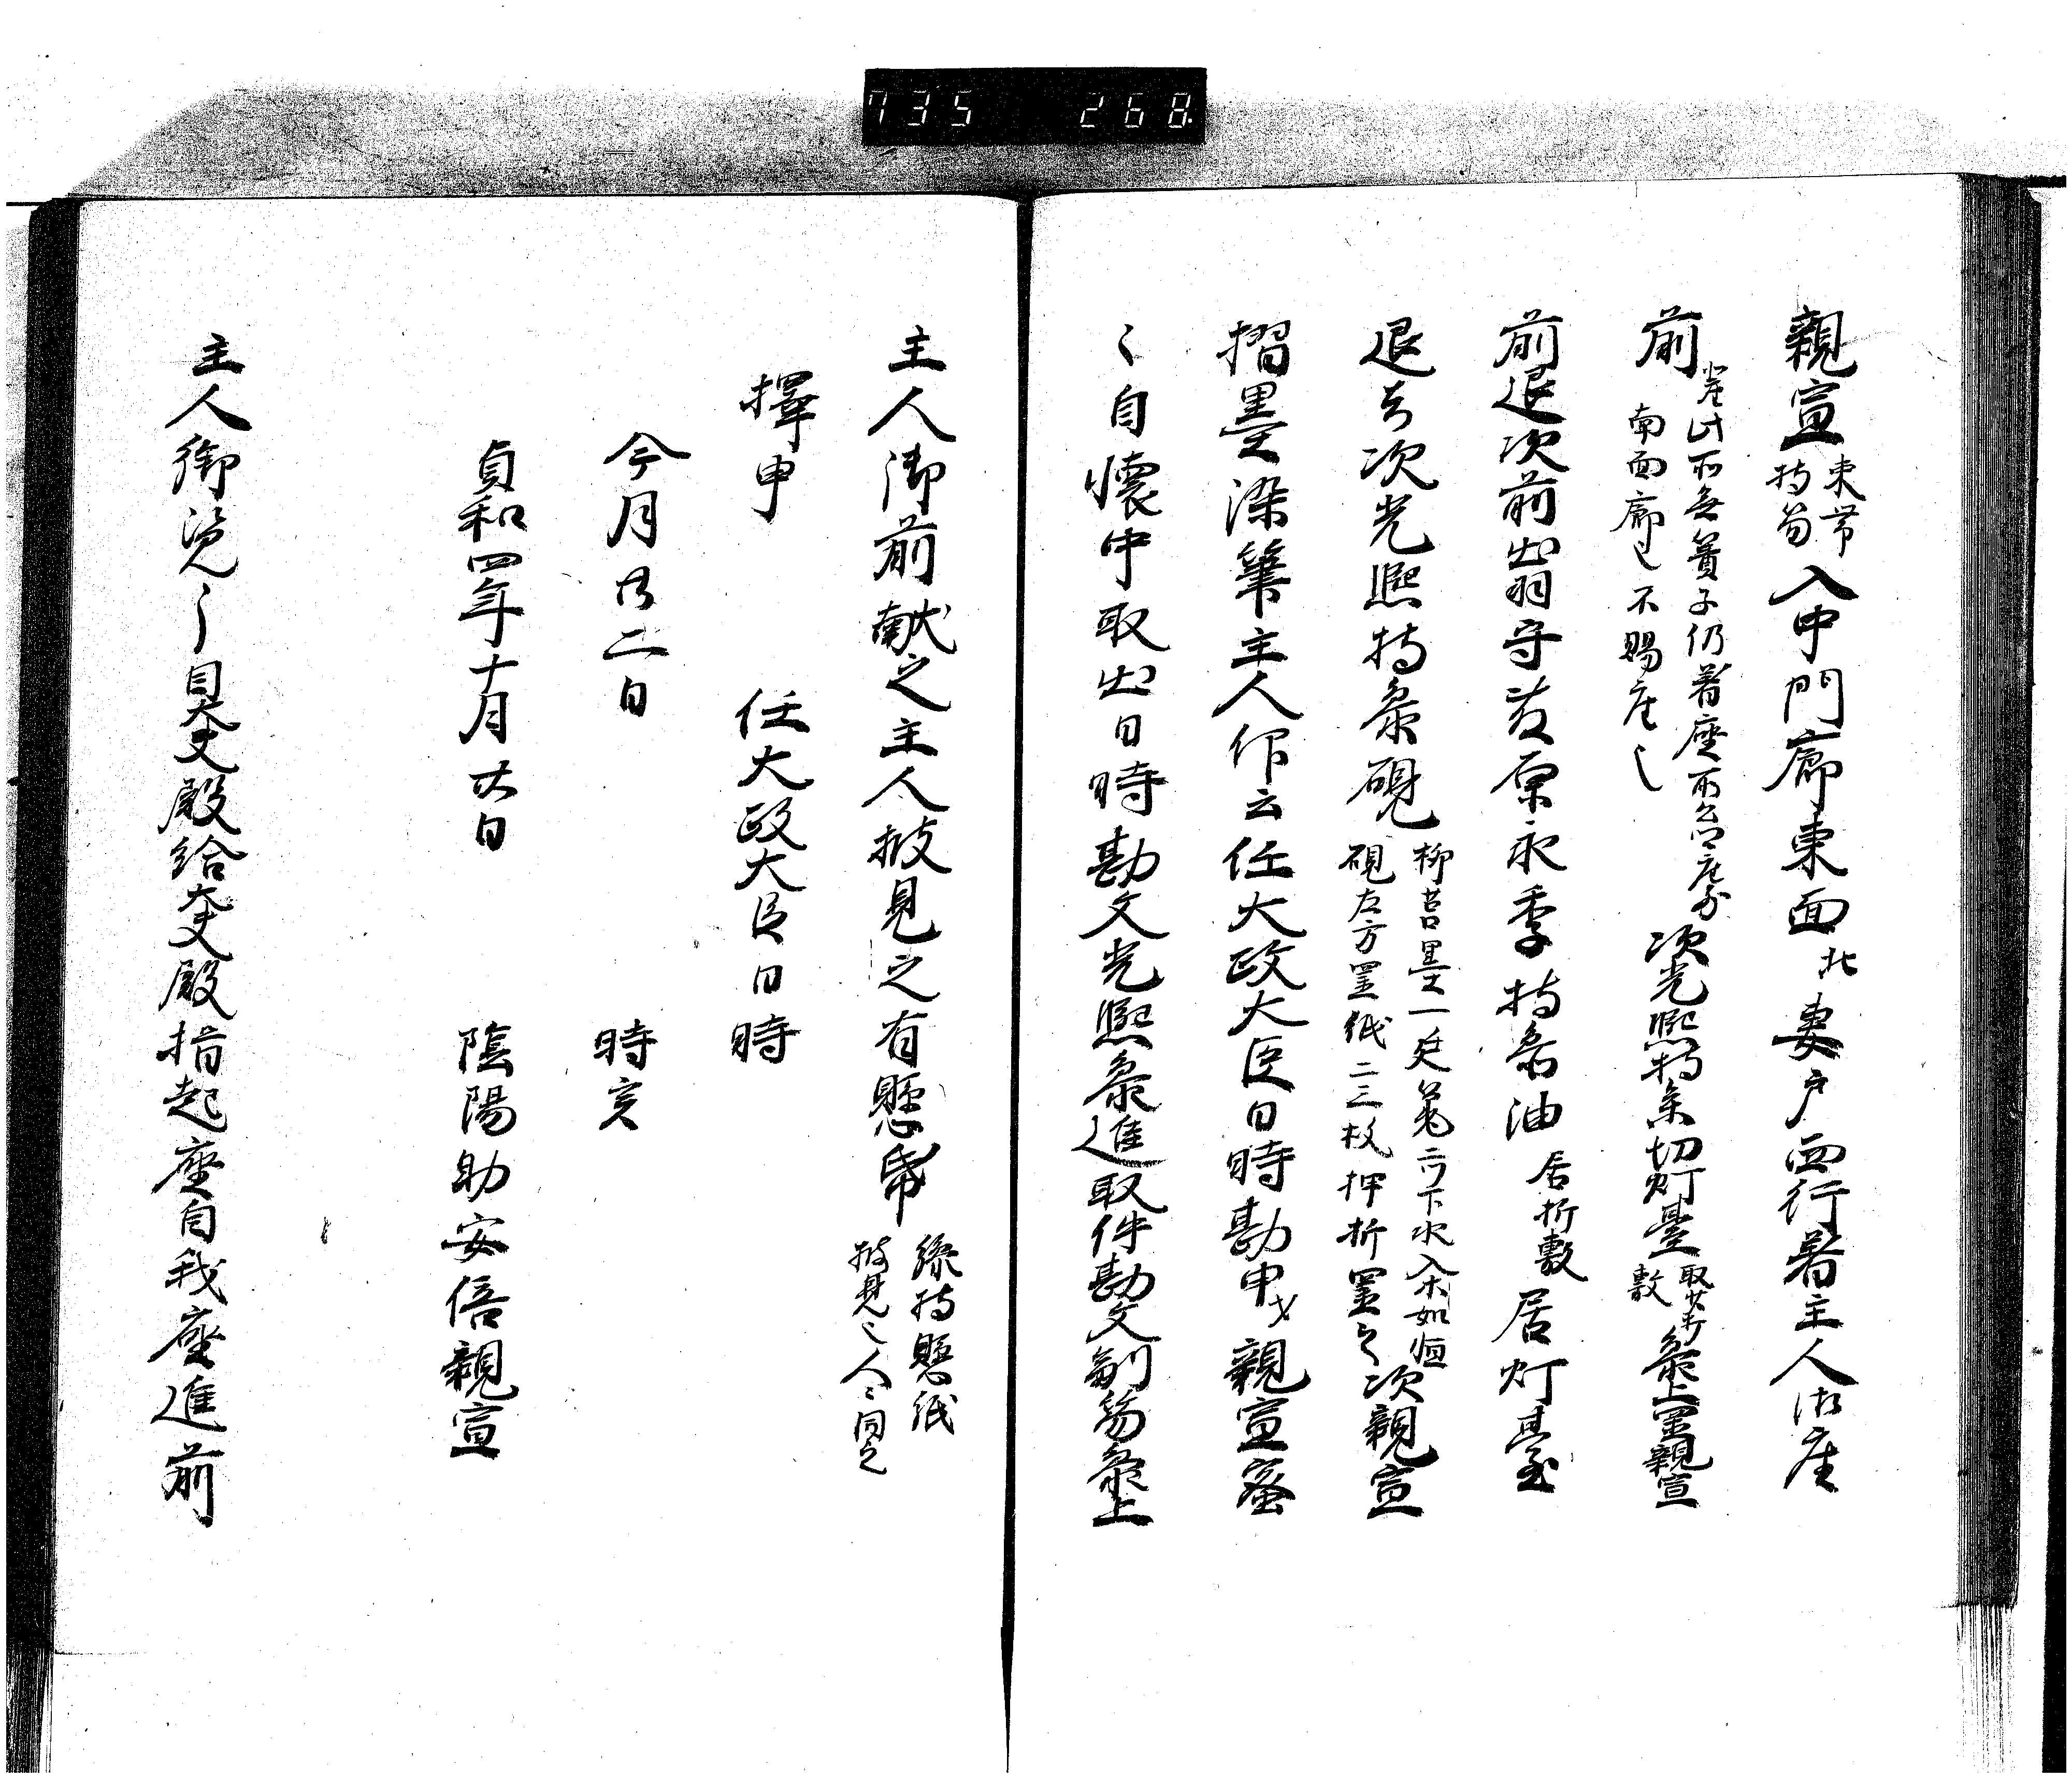 735 268
親宣束帯持笏入中門廊東面北妻戸西行著主人御座
前此所無簀子仍着座南面廊也不賜座也次光熈持参切灯臺取打敷参上置親宣
前退次前出羽守藤原永季持参油居折敷居灯臺
退去次光熈持参硯柳筥墨一廷筆二下水入等如恒硯左方置紙二三枚押折置之次親宣
摺墨染筆主人仰云任大政大臣日時勘申よ親宣蜜
〻自懐中取出日時勘文光熈参進取件勘文副笏参上
主人御前献之主人披見之有懸帋
擇申 任大政大臣日時
今月廿二日 時亥
貞和四年十月廿日 陰陽助安倍親宣
主人御覧之後目大夫殿給大夫殿指起座自我座進前